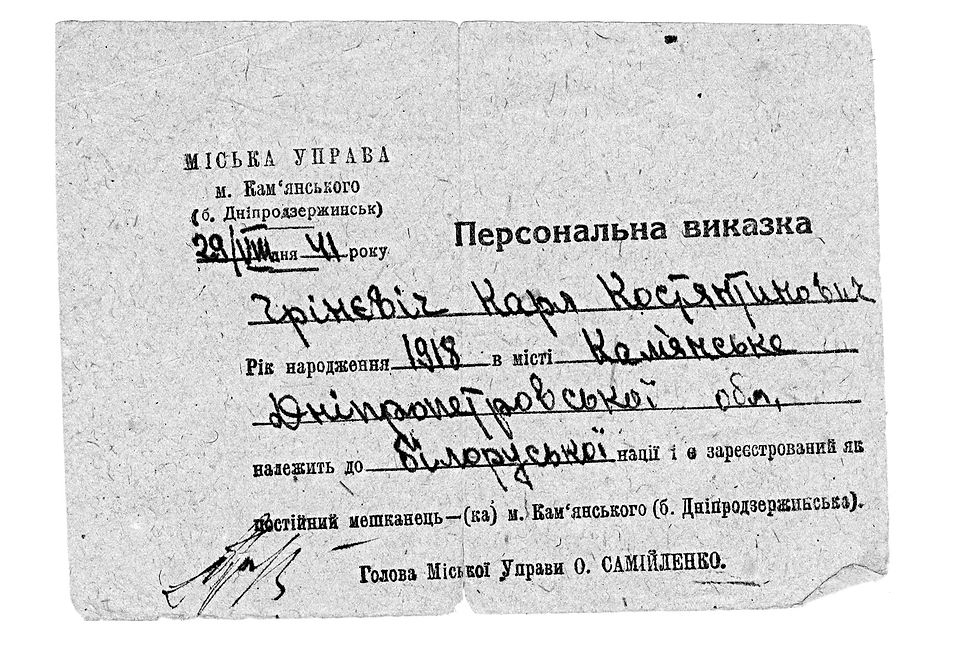 МІСЬКА УПРАВА
м. Кам'янського
(б. Дніпродзержинськ)
29/VIII дня 41 року
Персональна виказка
Грінєвіч Карл Костянтинович
Рік народження 1918 в місті Камянське
Дніпропетровської обл,
належить до білоруської нації і є зареєстрований як
постійний мешканець—(ка) м. Кам'янського (б. Дніпродзержинська).
Голова Міської Управи О. САМІЙЛЕНКО.